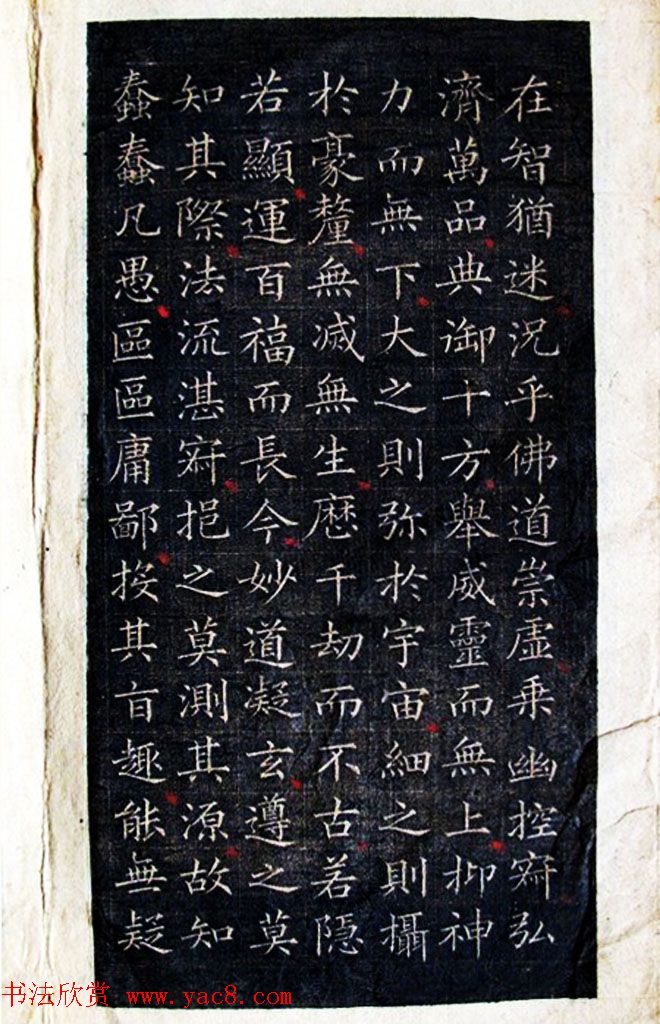 在智猶迷況乎佛道崇虛乗幽控寂弘
濟萬品典御十方舉威靈而無上抑神
力而無下大之則弥於宇宙細之則攝
於豪釐無滅無生歴千劫而不古若隱
若顯運百福而長今妙道凝玄遵之莫
知其際法流湛寂挹之莫測其源故知
蠢蠢凡愚區區庸鄙投其旨趣能無疑
书法欣赏 www.yac8.com